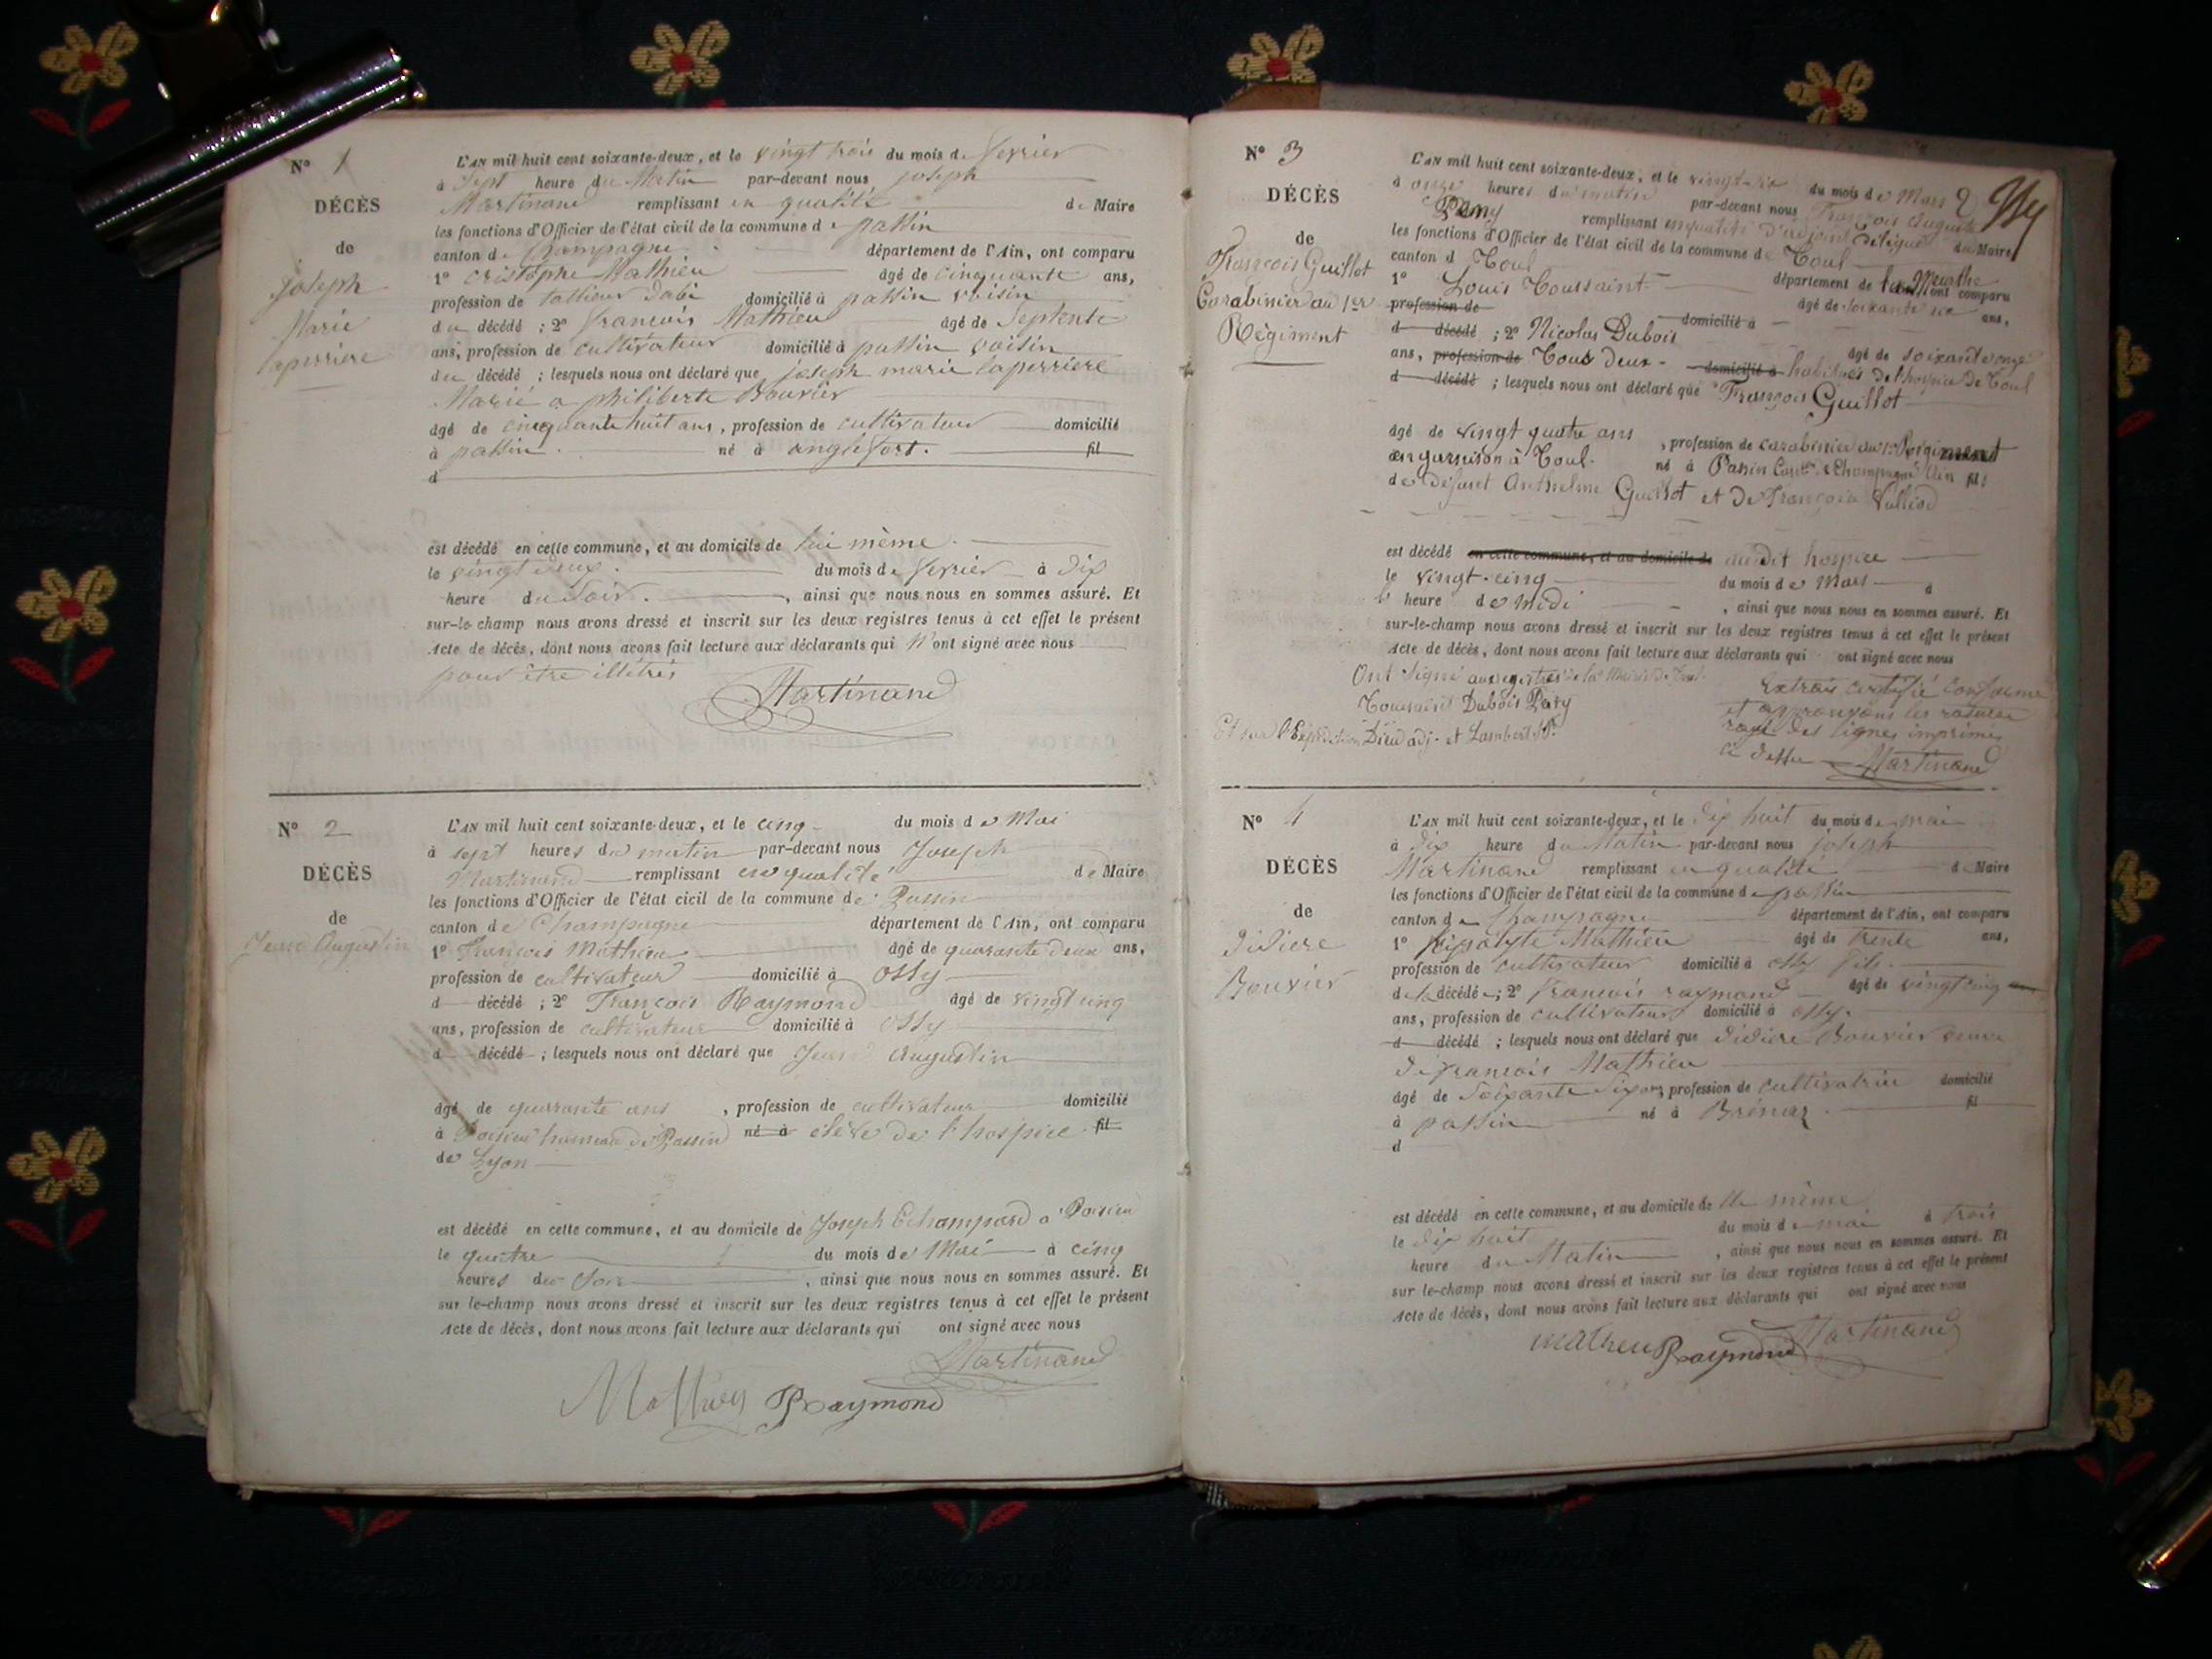 N° 1
DÉCÈS
de
Joseph
Marie
laperriere
L'AN mil huit cent soixante-deux, et le vingt trois du mois de fevrier
à sept heure du Matin par-devant nous joseph
Martinand remplissant en qualité de Maire
les fonctions d'Officier de l'état civil de la commune de passin
canton de Champagne département de l'Ain, ont comparu
1° cristophe Mathieu âgé de cinquante ans,
profession de tallieur dabi domicilié à passin voisin
du décédé ; 2° francois Mathieu âgé de septente
ans, profession de cultivateur domicilié à passin voisin
du décédé ; lesquels nous ont déclaré que joseph marie laperriere
Marié a philiberte Bouvier
âgé de cinquante huit ans, profession de cultivateur domicilié
à passin né à anglefort. fil
d
est décédé en cette commune, et au domicile de lui même
le vingt deux du mois de fevrier à dix
heure du soir, ainsi que nous nous en sommes assuré. Et
sur-le-champ nous avons dressé et inscrit sur les deux registres tenus à cet effet le présent
Acte de décès, dont nous avons fait lecture aux déclarants qui n'ont signé avec nous
pour être illétrés
Martinand
N° 2
DÉCÈS
de
Augustin
L'AN mil huit cent soixante-deux, et le cinq du mois de Mai
à sept heures du matin par-devant nous Joseph
Martinand remplissant en qualité de Maire
les fonctions d'Officier de l'état civil de la commune de Passin
canton de Champagne département de l'Ain, ont comparu
1° François Mathieu âgé de quarante deux ans,
profession de cultivateur domicilié à Ossy
d décédé ; 2° François Raymond âgé de vingt cinq
ans, profession de cultivateur domicilié à Ossy
d décédé ; lesquels nous ont déclaré que Augustin
âgé de quarante ans, profession de cultivateur domicilié
à Poisieu hameau de Passin né à élève de l'hospice fil
de Lyon
est décédé en cette commune, et au domicile de Joseph Echampard à Poisieu
le quatre du mois de Mai à cinq
heures du soir, ainsi que nous nous en sommes assuré. Et
sur le-champ nous avons dressé et inscrit sur les deux registres tenus à cet effet le présent
Acte de décès, dont nous avons fait lecture aux déclarants qui ont signé avec nous
Martinand
Mathieu Raymond
N° 3
DÉCÈS
de
François Guillot
Carabinier au 1er
Régiment
L'AN mil huit cent soixante-deux, et le vingt-six du mois de Mars
à onze heures du matin par-devant nous François Auguste
remplissant en qualité d'adjoint délégué du Maire
les fonctions d'Officier de l'état civil de la commune de Toul
canton d Toul département de la Meurthe ont comparu
1° Louis Toussaint âgé de soixante ans,
profession de domicilié à
d décédé ; 2° Nicolas Dubois âgé de soixante onze
ans, profession de Tous deux domicilié à habitués de l'hospice de Toul
d décédé ; lesquels nous ont déclaré que François Guillot
âgé de vingt quatre ans, profession de carabinier au 1er Régiment
en garnison à Toul. né à Passin Canton de Champagne Ain fils
de défunt Anthelme Guillot et de Françoise Vulliod
est décédé en cette commune, et au domicile de audit hospice
le vingt-cinq du mois de Mars à
heure de midi, ainsi que nous nous en sommes assuré. Et
sur-le-champ nous avons dressé et inscrit sur les deux registres tenus à cet effet le présent
Acte de décès, dont nous avons fait lecture aux déclarants qui ont signé avec nous
Ont signé aux registres de la Mairie de Toul.
Toussaint Dubois
Et sur l'Expédition Dieu adj. et Lambert
Extrais certifié conforme
et approuvons les ratures
des lignes imprimes
ci dessus Martinand
N° 4
DÉCÈS
de
didiere
Bouvier
L'AN mil huit cent soixante-deux, et le dix huit du mois de mai
à dix heure du Matin par-devant nous joseph
Martinand remplissant en qualité de Maire
les fonctions d'Officier de l'état civil de la commune de passin
canton de Champagne département de l'Ain, ont comparu
1° hipolyte Mathieu âgé de trente ans,
profession de cultivateur domicilié à ossy fils
de la décédé ; 2° francois raymond âgé de vingt cinq
ans, profession de cultivateur domicilié à ossy.
d décédé ; lesquels nous ont déclaré que didiere Bouvier veuve
de francois Mathieu
âgé de soixante dix ans, profession de cultivatrice domicilié
à passin né à Brénaz fil
d
est décédé en cette commune, et au domicile de elle même
le dix huit du mois de mai à trois
heure du Matin, ainsi que nous nous en sommes assuré. Et
sur le-champ nous avons dressé et inscrit sur les deux registres tenus à cet effet le présent
Acte de décès, dont nous avons fait lecture aux déclarants qui ont signé avec nous
Mathieu Raymond Martinand